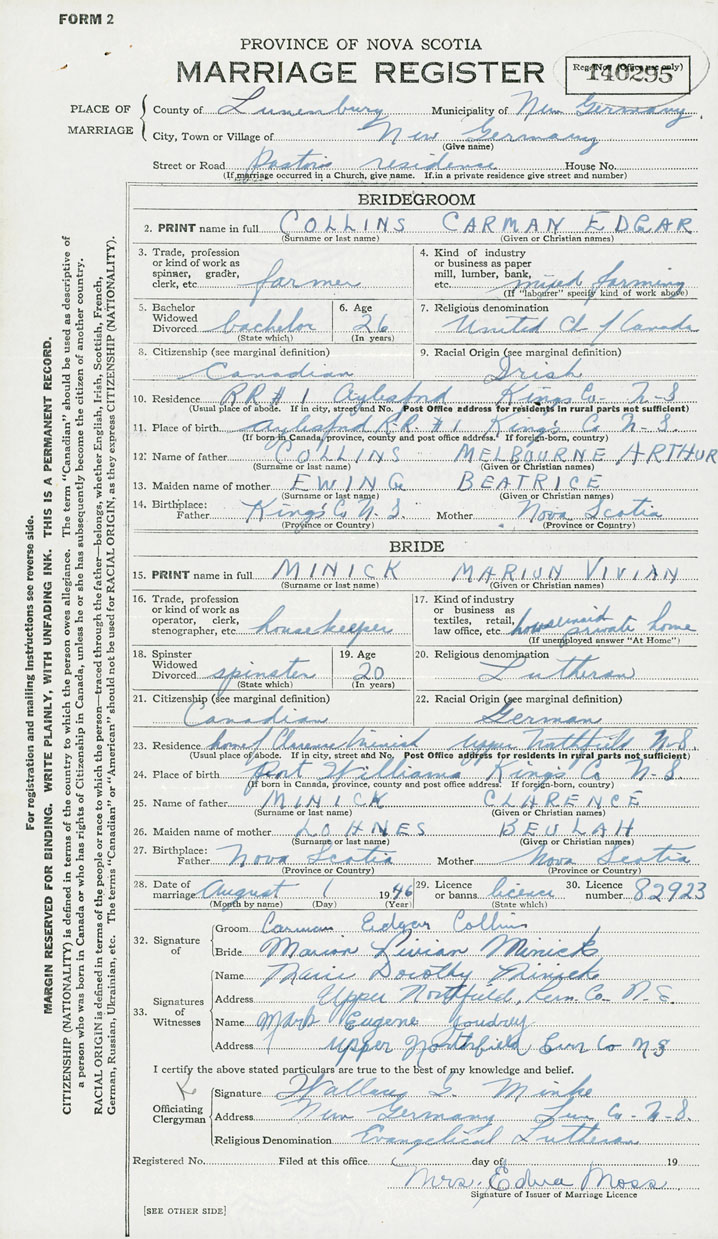 FORM 2
PROVINCE OF NOVA SCOTIA
MARRIAGE REGISTER
Reg. No. (Office use only)
140295
PLACE OF MARRIAGE
County of Lunenburg Municipality of New Germany
City, Town or Village of New Germany
(Give name)
Street or Road Pastor's residence House No.
(If marriage occurred in a Church, give name. If in a private residence give street and number)
BRIDEGROOM
2. PRINT name in full COLLINS CARMAN EDGAR
(Surname or last name) (Given or Christian names)
3. Trade, profession or kind of work as spinner, grader, clerk, etc. farmer
4. Kind of industry or business as paper mill, lumber, bank, etc. mixed farming
(If "labourer" specify kind of work above)
5. Bachelor Widowed Divorced bachelor
(State which)
6. Age 26
(In years)
7. Religious denomination United Ch of Canada
8. Citizenship (see marginal definition) Canadian
9. Racial Origin (see marginal definition) Irish
10. Residence RR#1 Aylesford Kings Co. N-S
(Usual place of abode. If in city, street and No. Post Office address for residents in rural parts not sufficient)
11. Place of birth Aylesford R.R. #1 King's Co N.S.
(If born in Canada, province, county and post office address. If foreign-born, country)
12. Name of father COLLINS MELBOURNE ARTHUR
(Surname or last name) (Given or Christian names)
13. Maiden name of mother EWING BEATRICE
(Surname or last name) (Given or Christian names)
14. Birthplace: Father King's Co N.S. Mother Nova Scotia
(Province or Country) (Province or Country)
BRIDE
15. PRINT name in full MINICK MARION VIVIAN
(Surname or last name) (Given or Christian names)
16. Trade, profession or kind of work as operator, clerk, stenographer, etc. housekeeper
17. Kind of industry or business as textiles, retail, law office, etc. housemaid private home
(If unemployed answer "At Home")
18. Spinster Widowed Divorced spinster
(State which)
19. Age 20
(In years)
20. Religious denomination Lutheran
21. Citizenship (see marginal definition) Canadian
22. Racial Origin (see marginal definition) German
23. Residence home of Clarence Minick Upper Northfield N.S.
(Usual place of abode. If in city, street and No. Post Office address for residents in rural parts not sufficient)
24. Place of birth Port Williams King's Co N-S
(If born in Canada, province, county and post office address. If foreign-born, country)
25. Name of father MINICK CLARENCE
(Surname or last name) (Given or Christian names)
26. Maiden name of mother LOHNES BEULAH
(Surname or last name) (Given or Christian names)
27. Birthplace: Father Nova Scotia Mother Nova Scotia
(Province or Country) (Province or Country)
28. Date of marriage August 1 1946
(Month by name) (Day) (Year)
29. Licence or banns licence
(State which)
30. Licence number 82923
32. Signature of
Groom Carman Edgar Collins
Bride Marion Vivian Minick
33. Signatures of Witnesses
Name Dorothy Minick
Address Upper Northfield, Lun. Co. N.S.
Name Mark Eugene Joudrey
Address Upper Northfield Lun Co N S
I certify the above stated particulars are true to the best of my knowledge and belief.
Officiating Clergyman
Signature Wallace G. Minke
Address New Germany Lun Co. N.S.
Religious Denomination Evangelical Lutheran
Registered No. Filed at this office day of 19
Mrs. Edna Moss
Signature of Issuer of Marriage Licence
[SEE OTHER SIDE]
For registration and mailing instructions see reverse side.
MARGIN RESERVED FOR BINDING. WRITE PLAINLY, WITH UNFADING INK. THIS IS A PERMANENT RECORD.
CITIZENSHIP (NATIONALITY) is defined in terms of the country to which the person owes allegiance. The term "Canadian" should be used as descriptive of
a person who was born in Canada or who has rights of Citizenship in Canada, unless he or she has subsequently become the citizen of another country.
RACIAL ORIGIN is defined in terms of the people or race to which the person—traced through the father—belongs, whether English, Irish, Scottish, French,
German, Russian, Ukrainian, etc. The terms "Canadian" or "American" should not be used for RACIAL ORIGIN, as they express CITIZENSHIP (NATIONALITY).